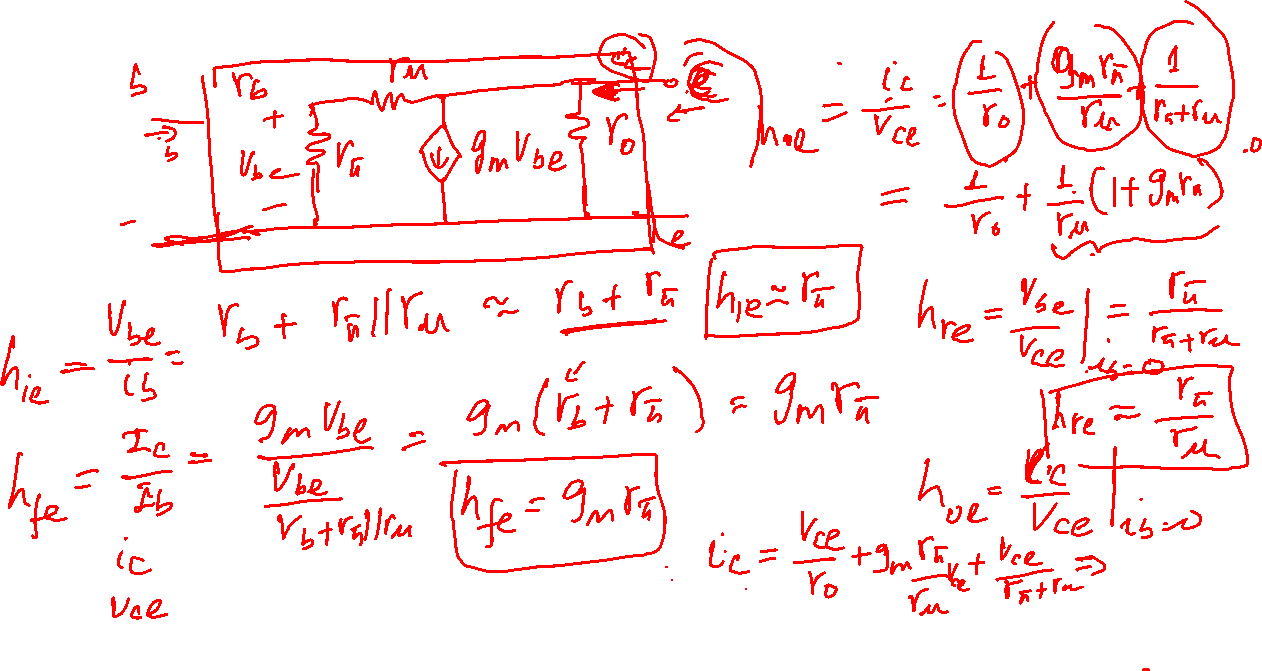 b
i_b
r_b
+
v_be
-
-
r_π
r_μ
g_m v_be
r_o
c
e
h_oe = i_c/v_ce = 1/r_o + g_m r_π/r_μ + 1/(r_π+r_μ)
= 1/r_o + 1/r_μ (1+g_m r_π)
h_ie = v_be/i_b = r_b + r_π//r_μ ≈ r_b + r_π
h_ie ≈ r_π
h_re = v_be/v_ce |_{i_b=0} = r_π/(r_π+r_μ)
h_re ≈ r_π/r_μ
h_fe = I_c/I_b = g_m v_be/(v_be/(r_b+r_π//r_μ)) = g_m(r_b+r_π) = g_m r_π
h_fe = g_m r_π
h_oe = i_c/v_ce |_{i_b=0}
i_c
v_ce
i_c = v_ce/r_o + g_m r_π/r_μ v_ce + v_ce/(r_π+r_μ) ⇒